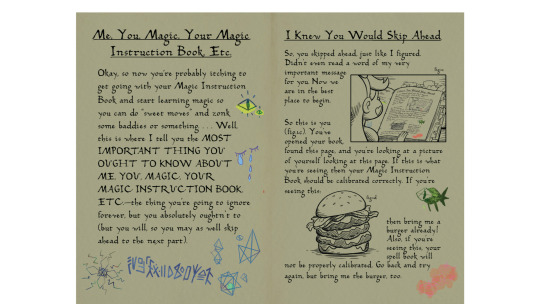 Me, You, Magic, Your Magic
Instruction Book, Etc.
Okay, so now you're probably itching to
get going with your Magic Instruction
Book and start learning magic so
you can do "sweet moves" and zonk
some baddies or something . . . Well,
this is where I tell you the MOST
IMPORTANT THING YOU
OUGHT TO KNOW ABOUT
ME, YOU, MAGIC, YOUR
MAGIC INSTRUCTION BOOK,
ETC.—the thing you're going to ignore
forever, but you absolutely oughtn't to
(but you will, so you may as well skip
ahead to the next part).
I Knew You Would Skip Ahead
So, you skipped ahead, just like I figured.
Didn't even read a word of my very
important message
for you. Now we
are in the best
place to begin.
So this is you
found this page, and you're looking at a picture
of yourself looking at this page. If this is what
you're seeing, then your Magic Instruction
Book should be calibrated correctly. If you're
seeing this:
then bring me a
burger already!
Also, if you're
seeing this, your
spell book will
not be properly calibrated. Go back and try
again, but bring me the burger, too.